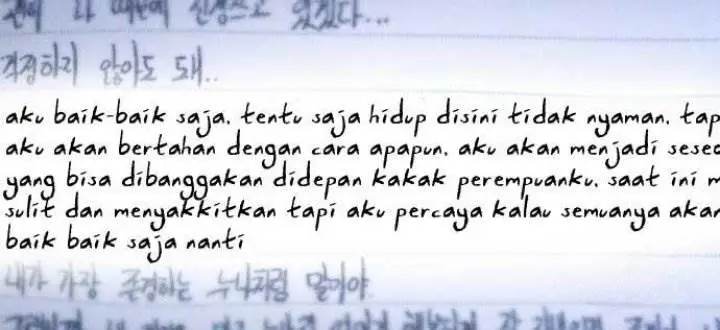 걱정하지 않아도 돼..
aku baik-baik saja. tentu saja hidup disini tidak nyaman. tap
aku akan bertahan dengan cara apapun. aku akan menjadi sesec
yang bisa dibanggakan didepan kakak perempuanku. saat ini m
sulit dan menyakkitkan tapi aku percaya kalau semuanya akan
baik baik saja nanti
내가 가장 존경하는 누나처럼 말이야